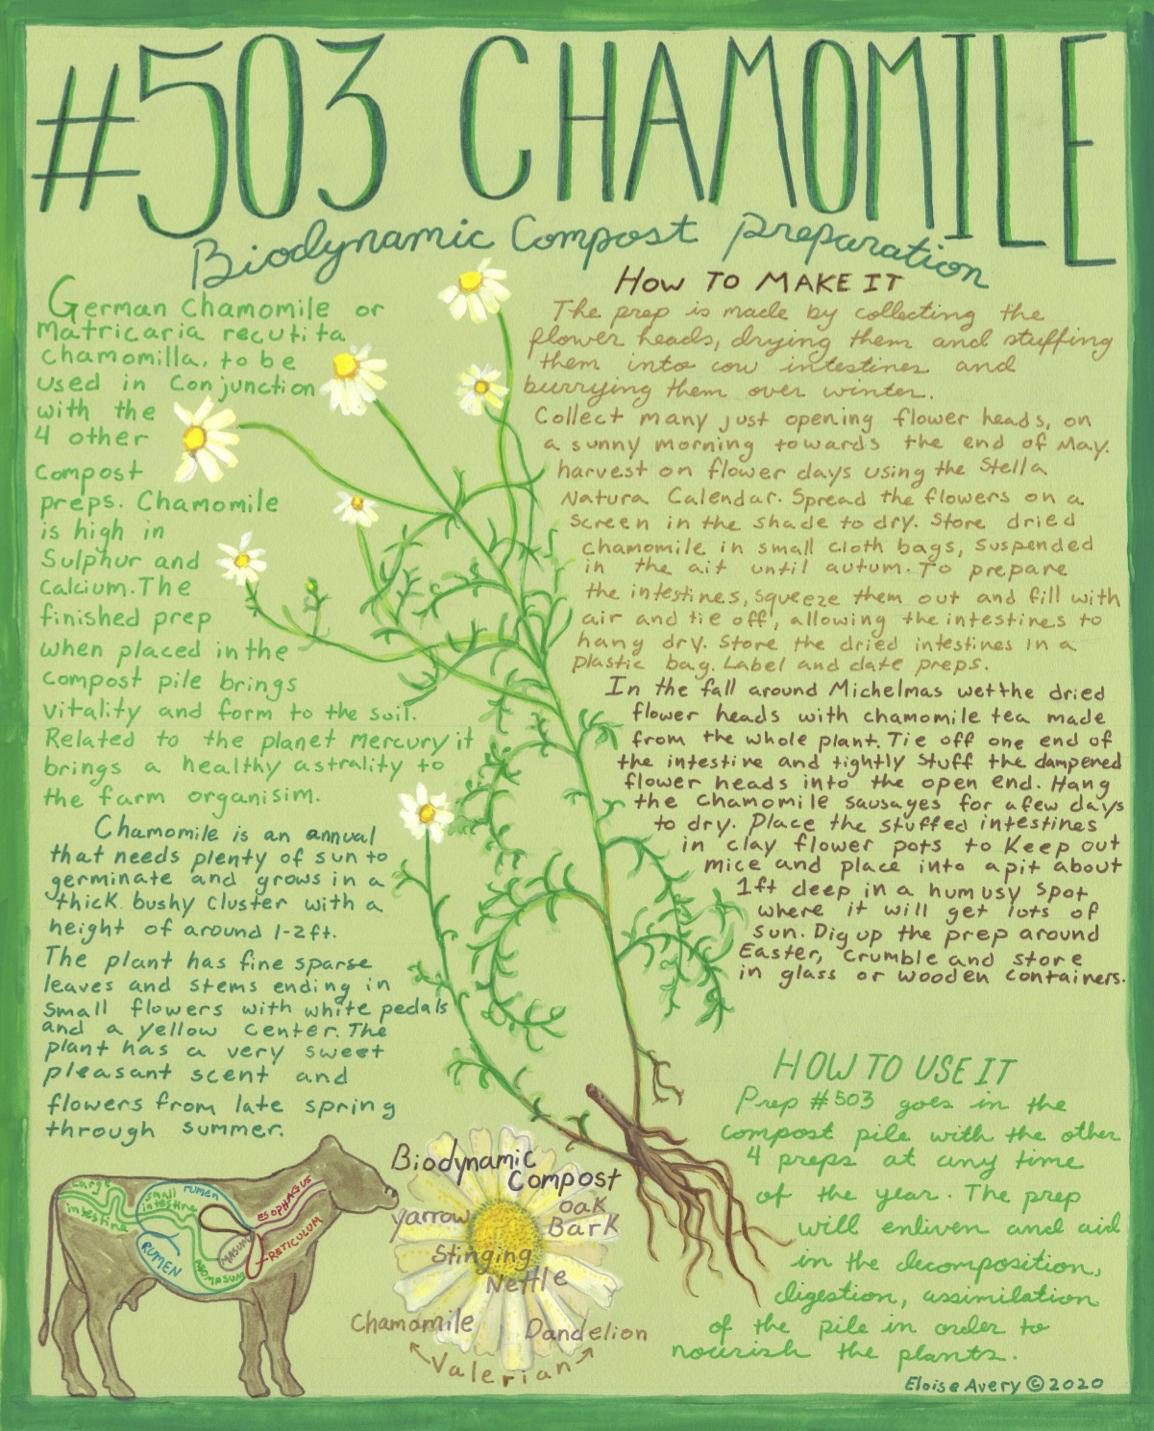 #503 CHAMOMILE
Biodynamic Compost Preparation
German Chamomile or
Matricaria recutita
chamomilla, to be
used in Conjunction
with the
4 other
compost
preps. Chamomile
is high in
Sulphur and
calcium. The
finished prep
when placed in the
compost pile brings
vitality and form to the soil.
Related to the planet Mercury it
brings a healthy astrality to
the farm organisim.
Chamomile is an annual
that needs plenty of sun to
germinate and grows in a
thick bushy cluster with a
height of around 1-2ft.
The plant has fine sparse
leaves and stems ending in
small flowers with white pedals
and a yellow center. The
plant has a very sweet
pleasant scent and
flowers from late spring
through summer.
HOW TO MAKE IT
The prep is made by collecting the
flower heads, drying them and stuffing
them into cow intestines and
burrying them over winter.
Collect many just opening flower heads, on
a sunny morning towards the end of May.
harvest on flower days using the Stella
Natura Calendar. Spread the flowers on a
screen in the shade to dry. Store dried
chamomile in small cloth bags, suspended
in the ait until autum. To prepare
the intestines, squeeze them out and fill with
air and tie off, allowing the intestines to
hang dry. Store the dried intestines in a
plastic bag. Label and date preps.
In the fall around Michelmas wet the dried
flower heads with chamomile tea made
from the whole plant. Tie off one end of
the intestine and tightly stuff the dampered
flower heads into the open end. Hang
the chamomile sausages for a few days
to dry. Place the stuffed intestines
in clay flower pots to keep out
mice and place into a pit about
1ft deep in a humusy spot
where it will get lots of
sun. Dig up the prep around
Easter, crumble and store
in glass or wooden containers.
HOW TO USE IT
Prep #503 goes in the
compost pile with the other
4 preps at any time
of the year. The prep
will enliven and aid
in the decomposition,
digestion, assimilation
of the pile in order to
nourish the plants.
Large
intestine
small
intestine
rumen
ESOPHAGUS
RUMEN
OMASUM
RETICULUM
ABOMASUM
Biodynamic
Compost
yarrow
oak
Bark
Stinging
Nettle
Chamomile
Dandelion
Valerian
Eloise Avery © 2020